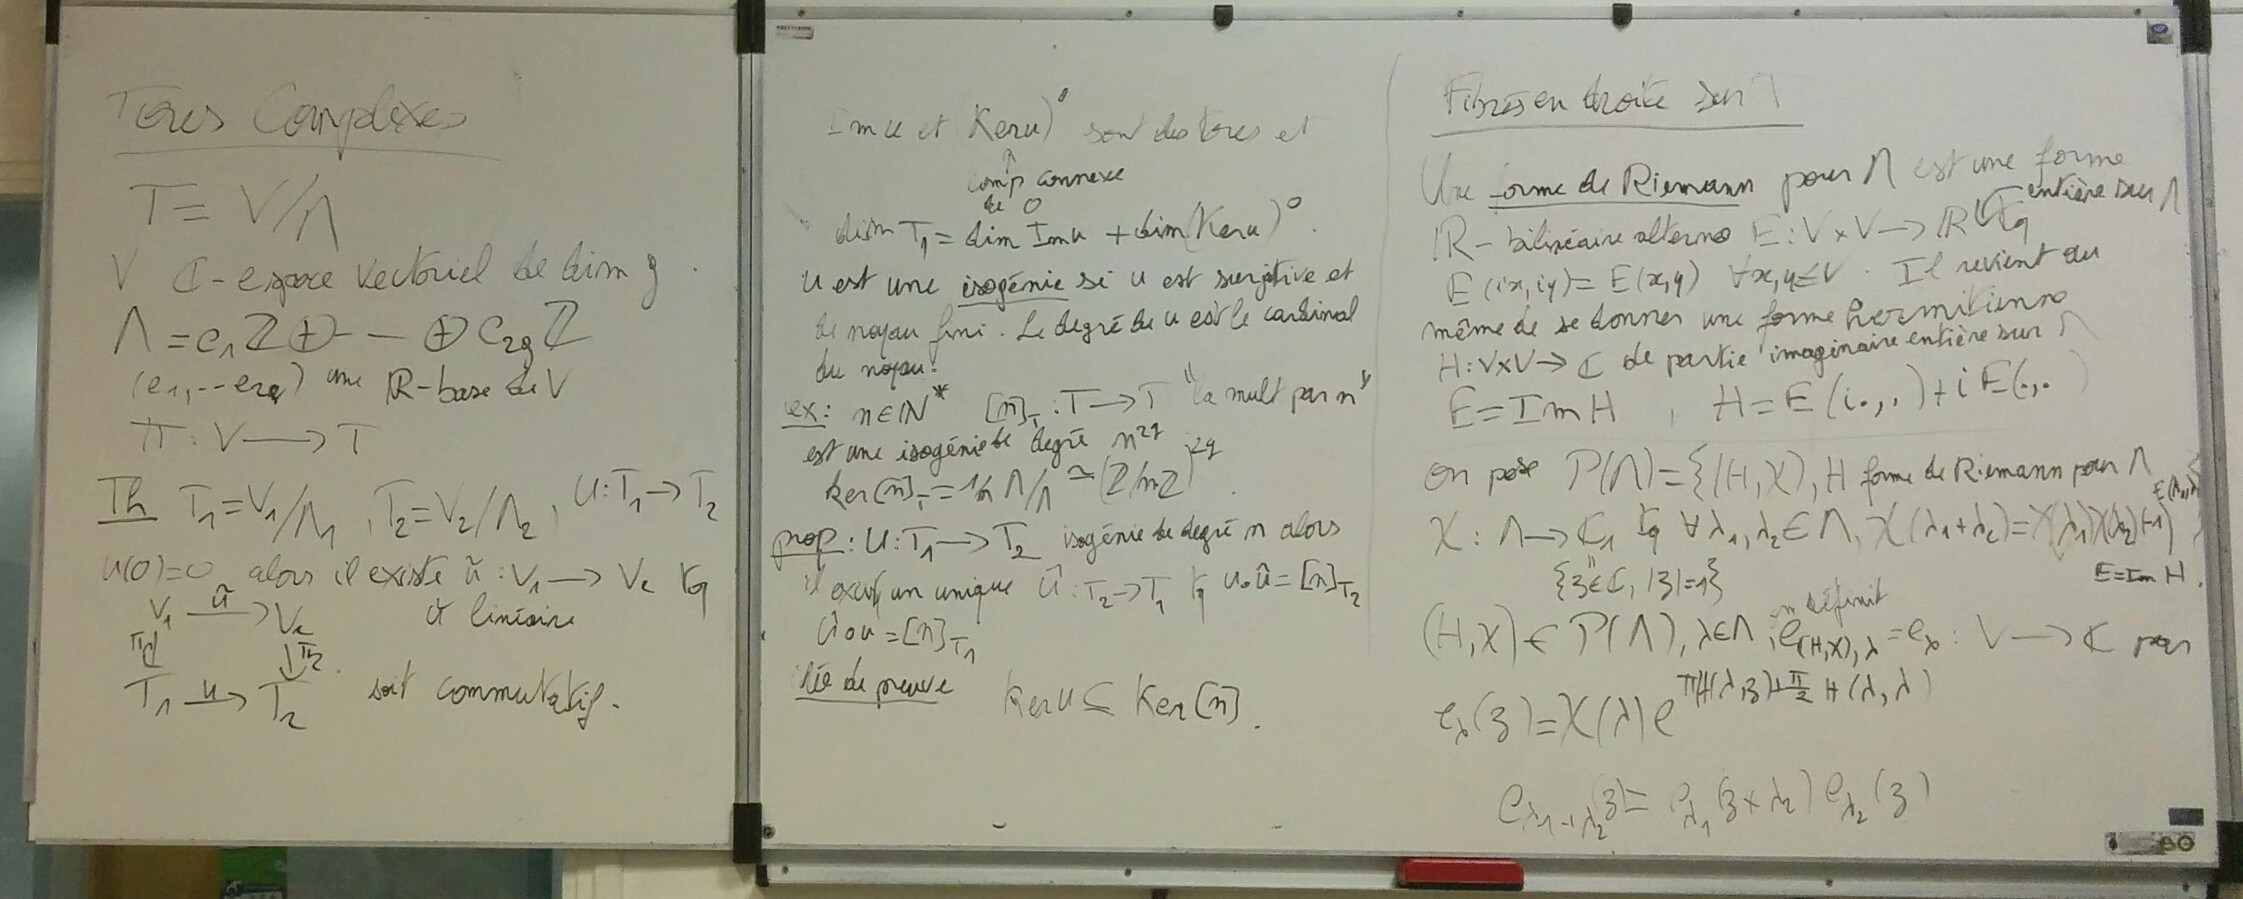 Tores Complexes
T = V/Λ
V ℂ-espace vectoriel de dim g.
Λ = e₁ℤ ⊕ -- ⊕ e₂gℤ
(e₁, -- e₂g) une ℝ-base de V
π : V → T
Th T₁=V₁/Λ₁, T₂=V₂/Λ₂, u:T₁→T₂
u(0)=0 alors il existe ũ : V₁ → V₂ tq
V₁ ũ→ V₂ ũ linéaire
π₁↓ ↓π₂
T₁ u→ T₂ soit commutatif.
Im u et (Ker u)⁰ sont des tores et
↑
comp connexe
de 0
dim T₁ = dim Im u + dim (Ker u)⁰.
u est une isogénie si u est surjective et
de noyau fini. Le degré de u est le cardinal
du noyau.
ex: n∈ℕ* [n]_T : T → T "la mult par n"
est une isogénie de degré n²ᵍ
ker[n]_T = 1/n Λ/Λ ≃ (ℤ/nℤ)²ᵍ.
prop: u: T₁ → T₂ isogénie de degré n alors
il existe un unique û : T₂→T₁ tq u∘û = [n]_T₂
û∘u = [n]_T₁
idée de preuve Ker u ⊆ Ker [n].
Fibrés en droite sur T
Une forme de Riemann pour Λ est une forme
ℝ-bilinéaire alterne E : V×V → ℝ entière sur Λ tq
E(ix,iy) = E(x,y) ∀x,y∈V. Il revient au
même de se donner une forme hermitienne
H: V×V → ℂ de partie imaginaire entière sur Λ
E = Im H, H = E(i.,.) + iE(.,.)
on pose P(Λ) = {(H,χ), H forme de Riemann pour Λ
χ : Λ → ℂ₁ tq ∀λ₁,λ₂∈Λ, χ(λ₁+λ₂) = χ(λ₁)χ(λ₂)(-1)^E(λ₁,λ₂)}
{z∈ℂ, |z|=1} E = Im H.
(H,χ) ∈ P(Λ), λ∈Λ, on définit e_(H,χ),λ = e_λ : V → ℂ par
e_λ(z) = χ(λ) e^πH(λ,z)+π/2 H(λ,λ)
e_λ₁+λ₂(z) = e_λ₁(z+λ₂) e_λ₂(z)